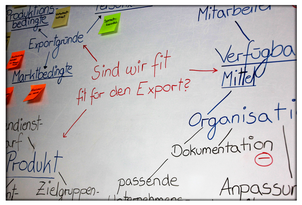 Produktions-
bedingte
Exportgründe
Marktbedingte
Sind wir fit
fit für den Export?
Mitarbeite
Verfügba
Mittel
Organisati
Dokumentation
Anpassun
passende
Unternehmens-
Produkt
Zielgruppen-
ndienst-
arf